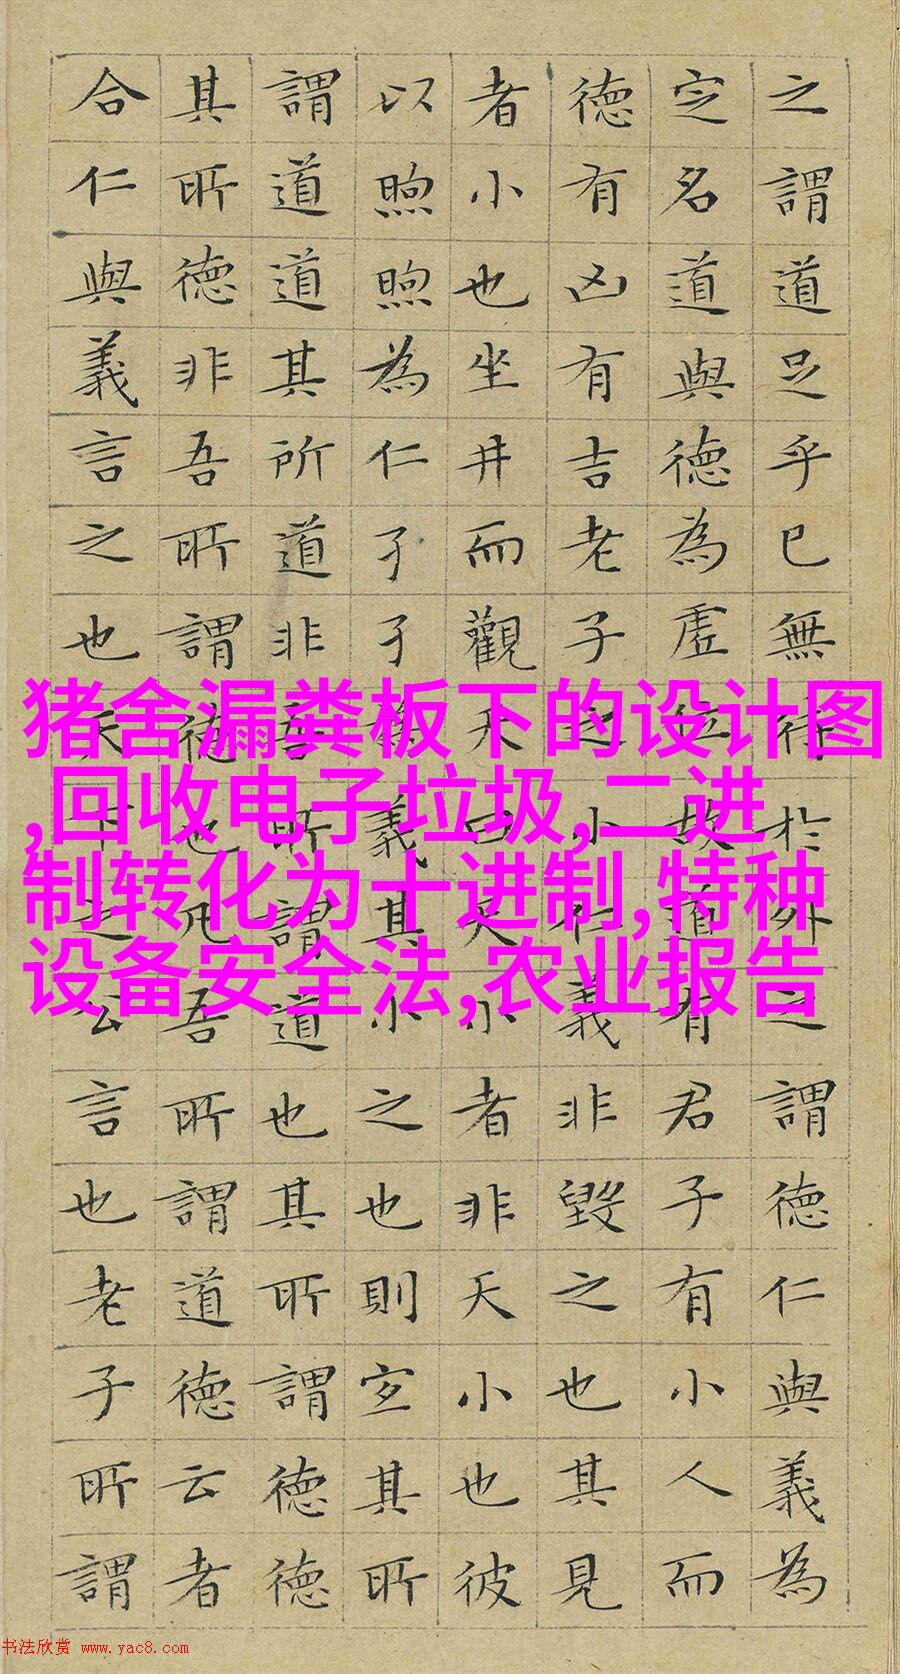 之謂道足乎已無待於外之謂德仁與義為
定名道與德為虛位故道有君子有小人而
德有凶有吉老子之小仁義非毀之也其見
者小也坐井而觀天曰天小者非天小也彼
以煦煦為仁孑孑為義其小之也則宜其所
謂道道其所道非吾所謂道也其所謂德德
其所德非吾所謂德也凡吾所謂道德云者
合仁與義言之也天下之公言也老子所謂
猪舍漏粪板下的设计图
,回收电子垃圾,二进
制转化为十进制,特种
设备安全法,农业报告
书法欣赏 www.yac8.com